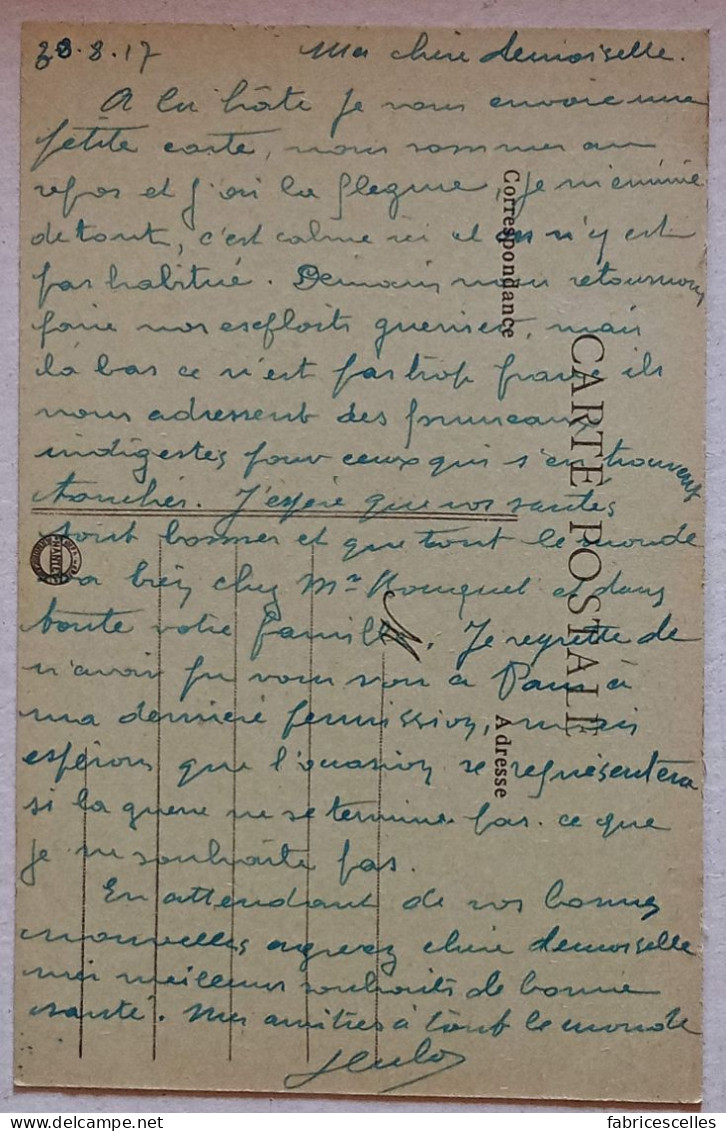 28.8.17 Ma chère demoiselle.
A la hâte je vous envoie une
petite carte, nous sommes au
repos et j'ai la flegme, je m'ennuie
de tout, c'est calme ici et on n'y est
pas habitué. Demain nous retournons
faire nos exploits guerriers, mais
là bas ce n'est pas trop grave ils
nous adressent des pruneaux
indigestes pour ceux qui s'en trouvent
touchés. J'espère que vos santés
sont bonnes et que tout le monde
va bien chez Mr Rouquet et dans
toute votre famille. Je regrette de
n'avoir pu vous voir à Paris à
ma dernière permission, mais
espérons que l'occasion se représentera
si la guerre ne se termine pas. ce que
je ne souhaite pas.
En attendant de vos bonnes
nouvelles agréez chère demoiselle
mes meilleurs souhaits de bonne
santé. Mes amitiés à tout le monde
Correspondance
CARTE POSTALE
M
Adresse
fabricescelles